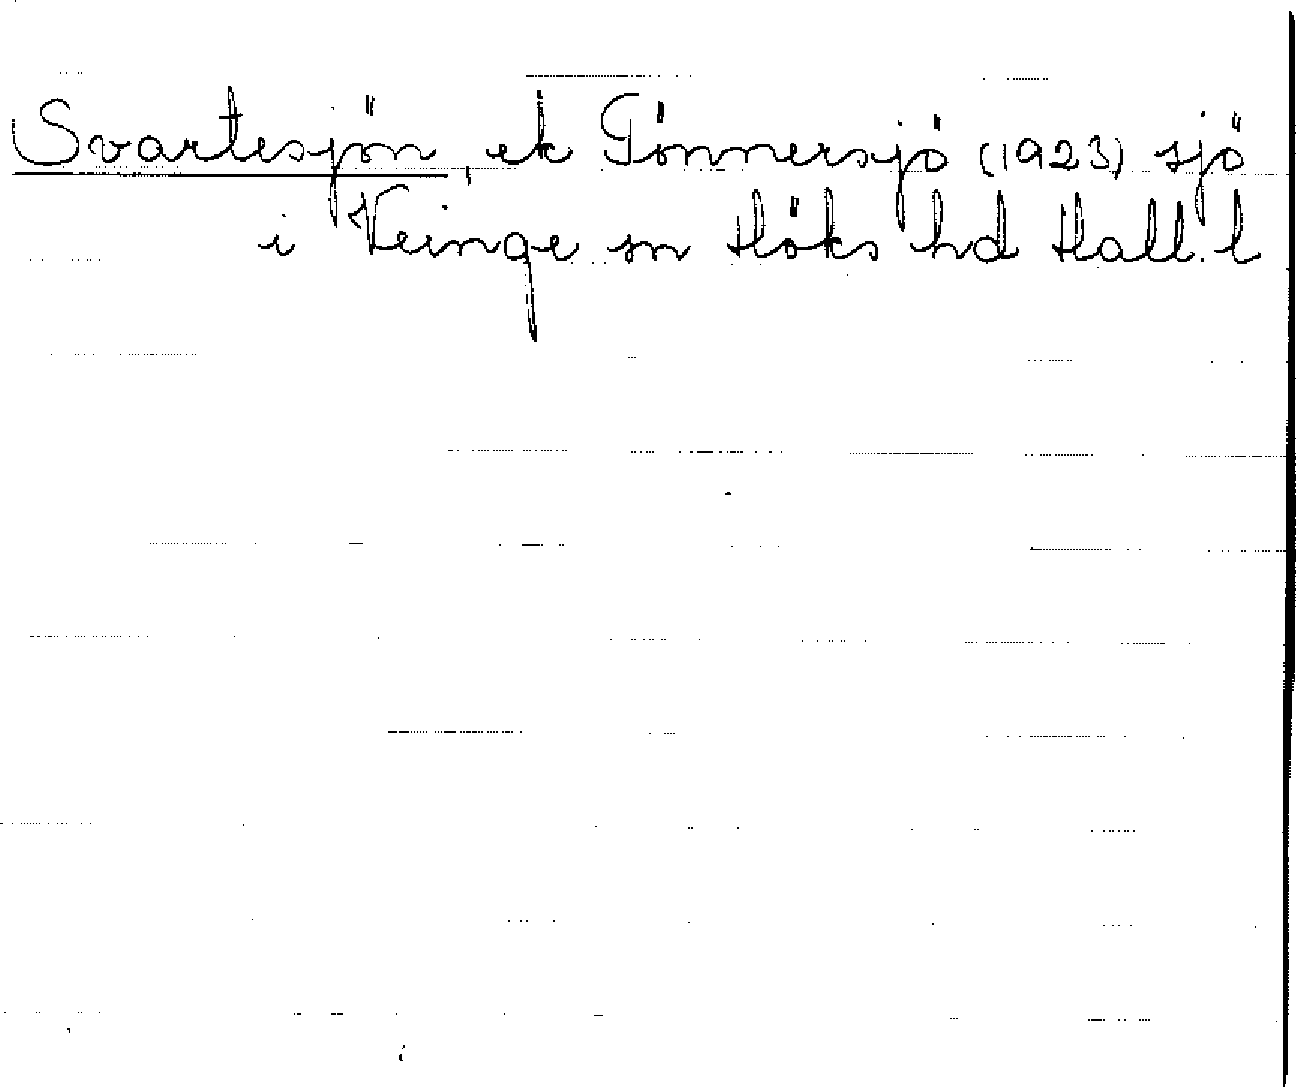 Svartesjön, ek Tönnersjö (1923) sjö
i Veinge sn Höks hd Hall. l